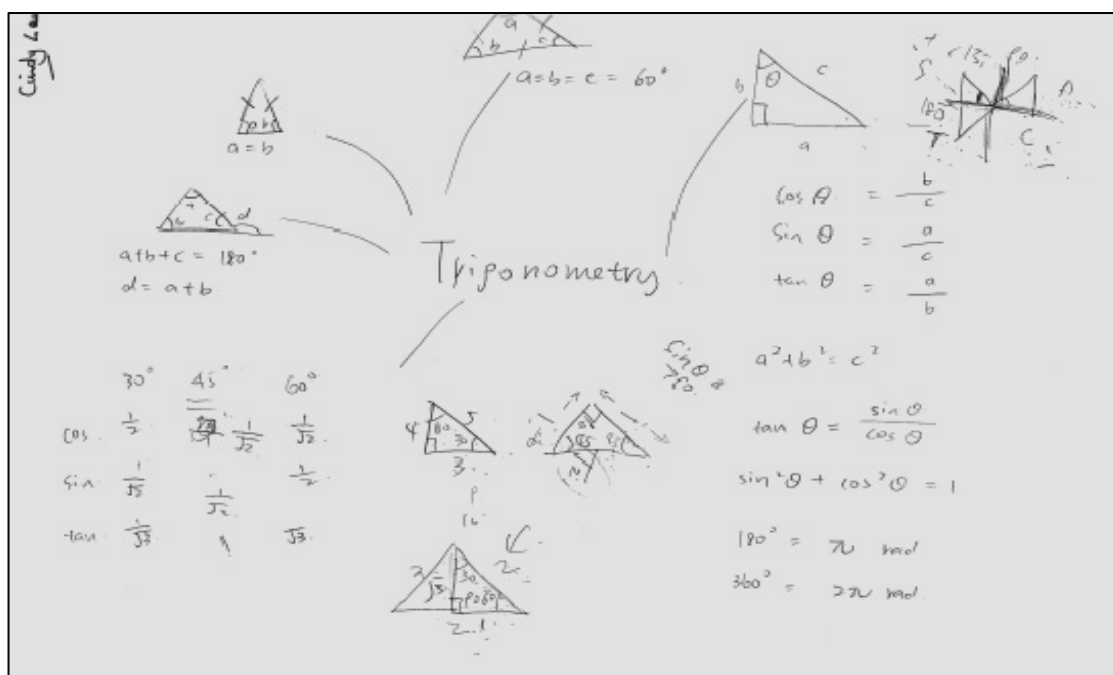 Cindy
a
b c
a=b=c = 60°
a b
a = b
a c d
a+b+c = 180°
d = a+b
Trigonometry
b θ c
a
S A
180
T C
cos θ = b/c
sin θ = a/c
tan θ = a/b
a²+b² = c²
tan θ = sin θ/cos θ
sin²θ + cos²θ = 1
180° = π rad
360° = 2π rad
sin θ
30° 45° 60°
cos 1/2 1/√2 1/√2
sin 1/√5 1/√2 1/2
tan 1/√3 1 √3
4 5
3
45
2 √3 30 2
60°
2 1